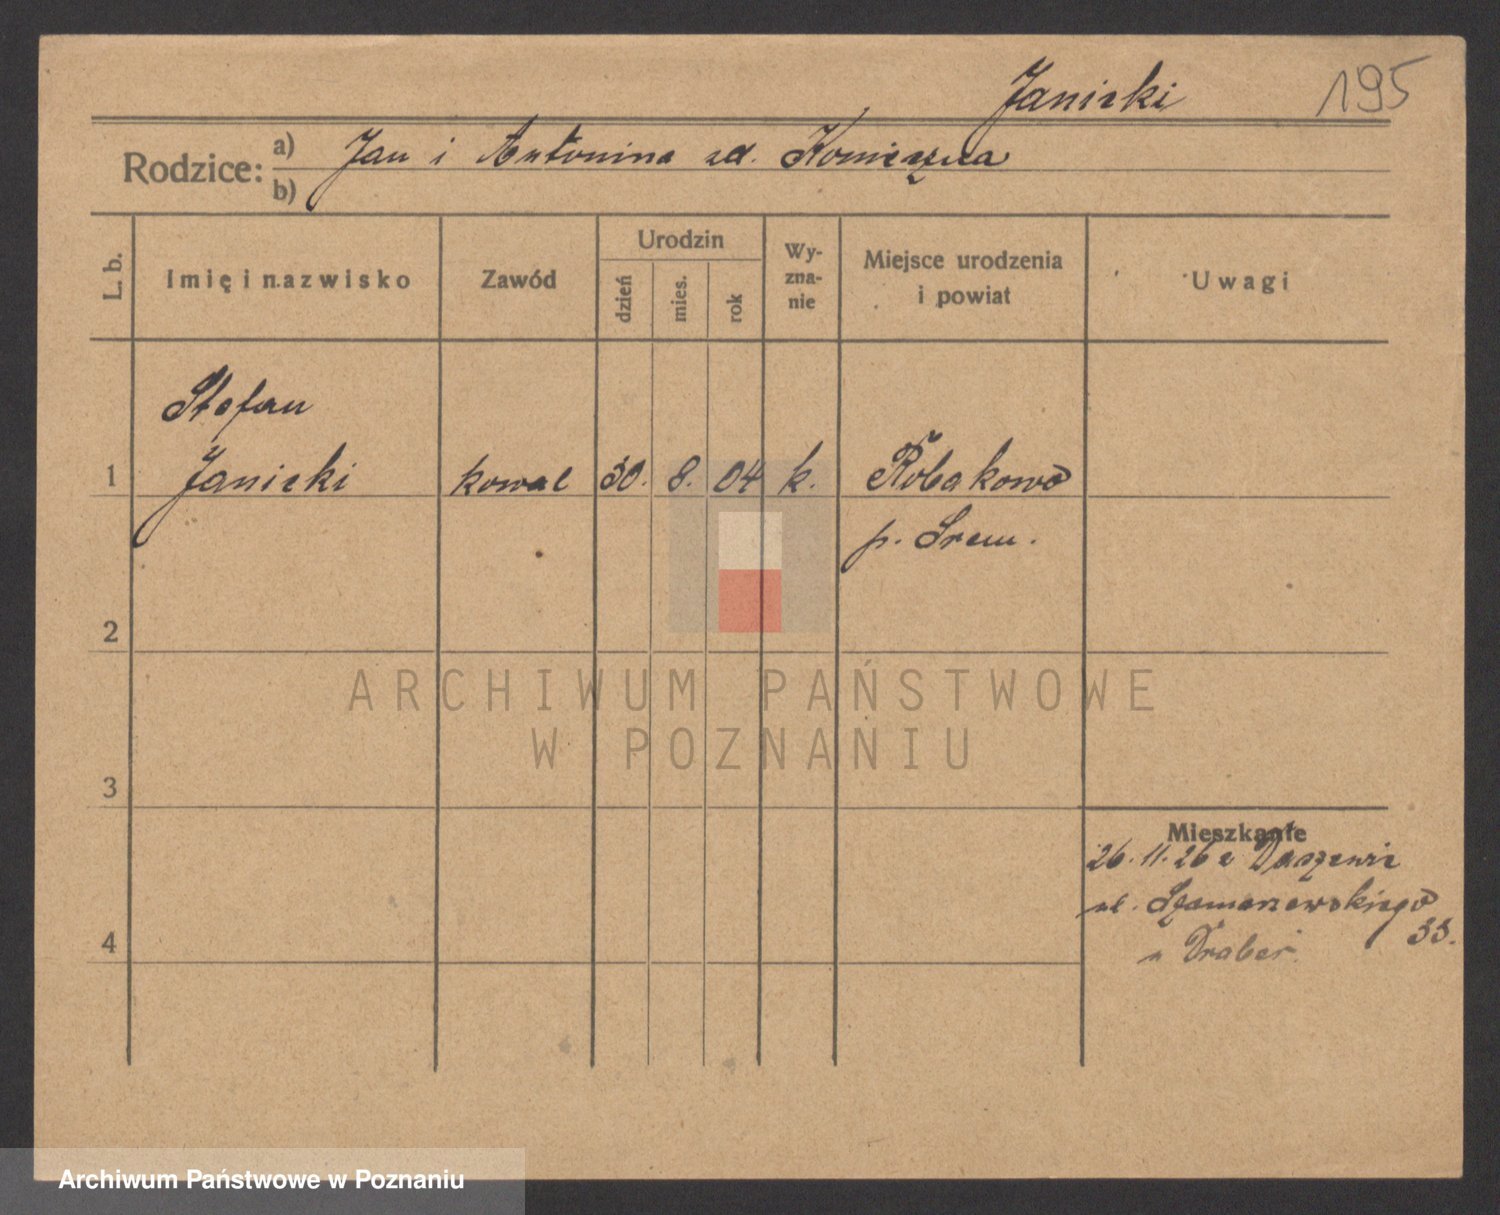 Janicki 195
Rodzice: a) Jan i Antonina zd. Konieczna
b)
L. b. Imię i nazwisko Zawód Urodzin dzień mies. rok Wy-zna-nie Miejsce urodzenia i powiat Uwagi
Stefan
1 Janicki kowal 30. 8. 04 k. Robakowo
p. Srem.
2
3
4
Mieszkanie
26. 11. 26 z Daszewic
ul. Szamarzewskiego
33.
ARCHIWUM PAŃSTWOWE
W POZNANIU
Archiwum Państwowe w Poznaniu